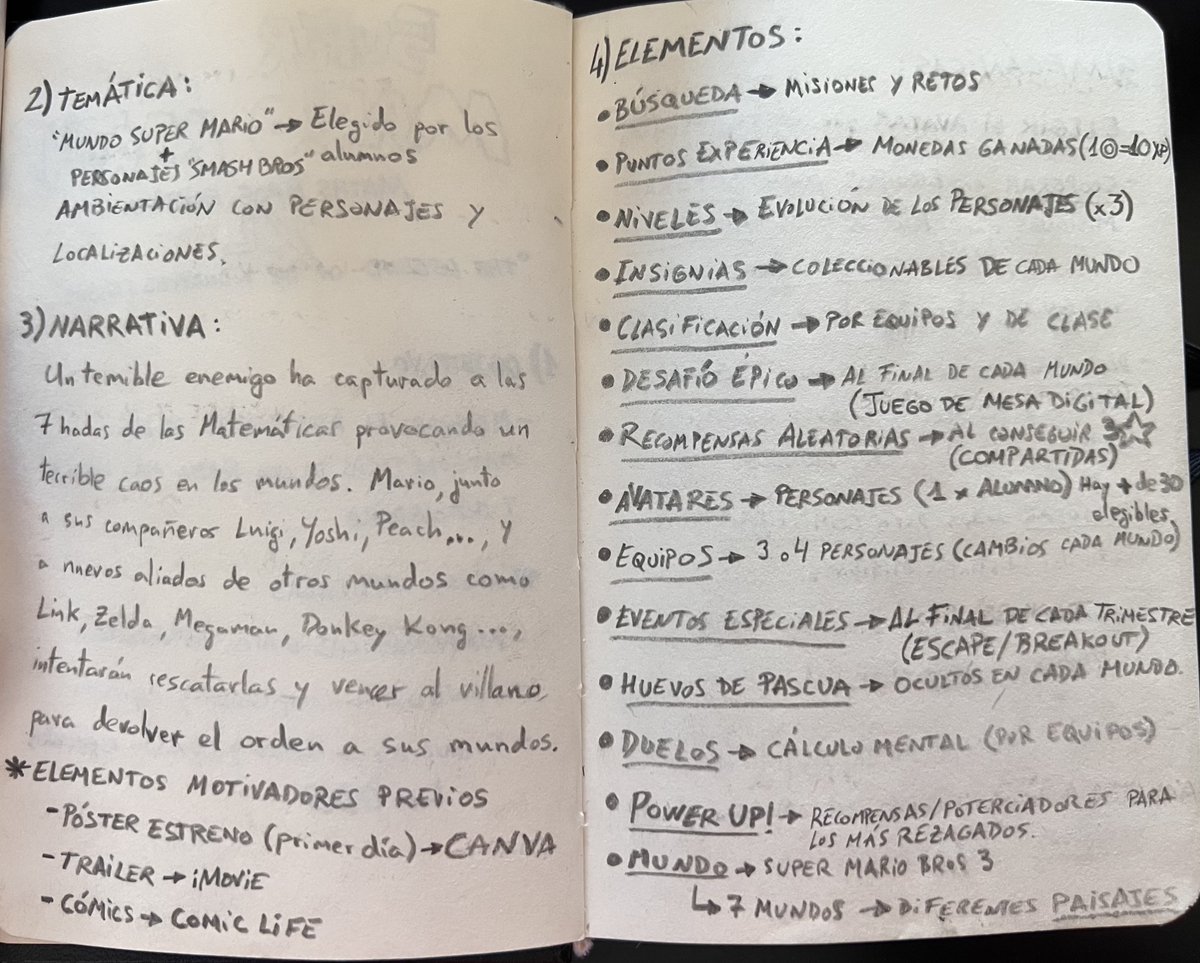 2) TEMÁTICA:
"MUNDO SUPER MARIO" → Elegido por los
+
PERSONAJES "SMASH BROS" alumnos
AMBIENTACIÓN CON PERSONAJES Y
LOCALIZACIONES.
3) NARRATIVA:
Un temible enemigo ha capturado a las
7 hadas de las Matemáticas provocando un
terrible caos en los mundos. Mario, junto
a sus compañeros Luigi, Yoshi, Peach..., y
a nuevos aliados de otros mundos como
Link, Zelda, Megaman, Donkey Kong ...,
intentarán rescatarlas y vencer al villano,
para devolver el orden a sus mundos.
* ELEMENTOS MOTIVADORES PREVIOS
- PÓSTER ESTRENO (primer día) → CANVA
- TRAILER → iMOViE
- CÓMICS → COMIC LIFE
4) ELEMENTOS:
• BÚSQUEDA → MISIONES Y RETOS
• PUNTOS EXPERIENCIA → MONEDAS GANADAS (1◎=10XP)
• NIVELES → EVOLUCIÓN DE LOS PERSONAJES (x3)
• INSIGNIAS → COLECCIONABLES DE CADA MUNDO
• CLASIFICACIÓN → POR EQUIPOS Y DE CLASE
• DESAFÍO ÉPICO → AL FINAL DE CADA MUNDO
(JUEGO DE MESA DIGITAL)
• RECOMPENSAS ALEATORIAS → AL CONSEGUIR 3☆
(COMPARTIDAS)
• AVATARES → PERSONAJES (1 x ALUMNO) Hay + de 30
elegibles
• EQUIPOS → 3 o 4 PERSONAJES (CAMBIOS CADA MUNDO)
• EVENTOS ESPECIALES → AL FINAL DE CADA TRIMESTRE
(ESCAPE/BREAKOUT)
• HUEVOS DE PASCUA → OCULTOS EN CADA MUNDO.
• DUELOS → CÁLCULO MENTAL (POR EQUIPOS)
• POWER UP! → RECOMPENSAS/POTERCIADORES PARA
LOS MÁS REZAGADOS.
• MUNDO → SUPER MARIO BROS 3
↳ 7 MUNDOS → DIFERENTES PAISAJES